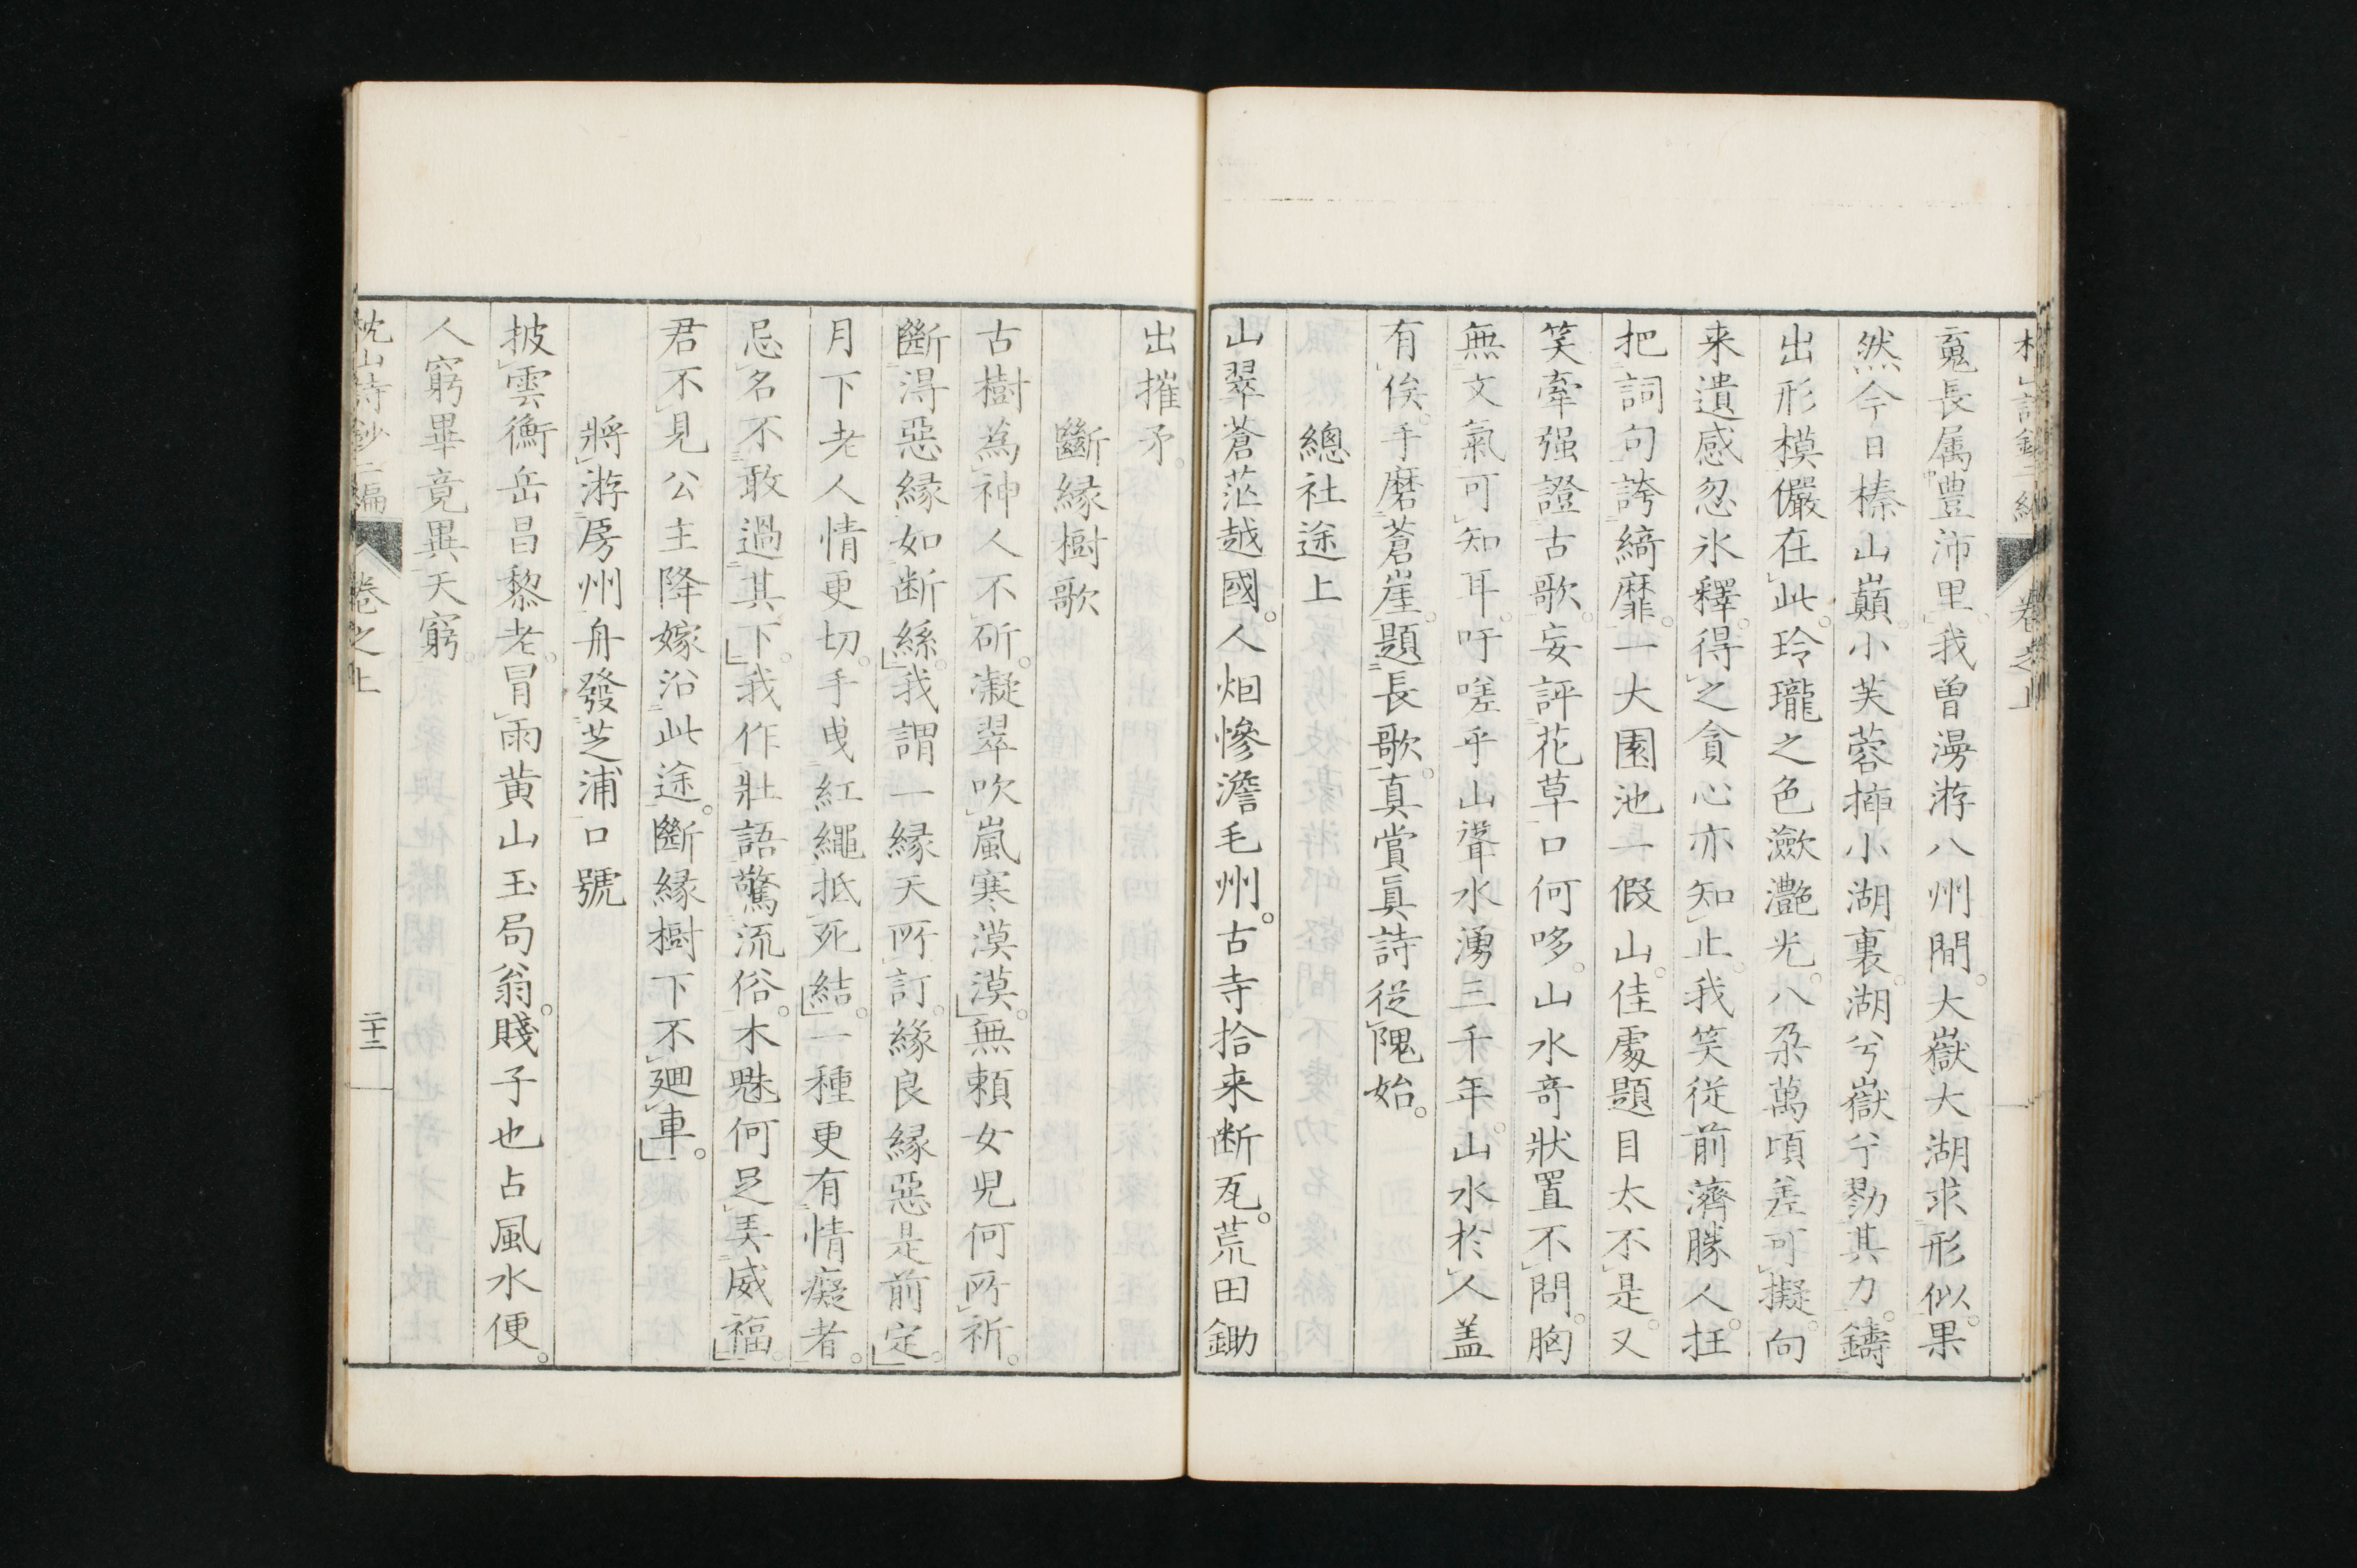 蒐長属豊沛里我曽漫游八州間。大嶽大湖求形似。果
然今日榛山巓。小芙蓉挿小湖裏。湖兮嶽兮勠其力。鑄
出形模儼在此。玲瓏之色瀲灔光。八朶萬頃差可擬。向
来遺感忽氷釋。得之貪心亦知止。我笑従前濟勝人。抂
把詞句誇綺靡。一大園池一假山。佳處題目太不是。又
笑牽强證古歌。妄評花草口何哆。山水竒狀置不問。胸
無文氣可知耳。吁嗟乎山聳水湧三千年。山水於人盖
有俟。手磨蒼崖題長歌。真賞眞詩従隗始。
總社途上
山翠蒼茫越國。人烟慘澹毛州。古寺拾来断瓦。荒田鋤
出摧矛。
斷縁樹歌
古樹為神人不斫。凝翠吹嵐寒漠漠。無頼女児何所祈。
斷得惡縁如断絲。我謂一縁天所訂。縁良縁惡是前定。
月下老人情更切。手曵紅繩抵死結。一種更有情癡者。
忌名不敢過其下。我作壯語驚流俗。木魅何足弄威福。
君不見公主降嫁沿此途。斷縁樹下不廻車。
將游房州舟發芝浦口號
披雲衡岳昌黎老。冒雨黄山玉局翁。賤子也占風水便。
人窮畢竟異天窮。
枕山詩鈔二編 卷之上 二十二